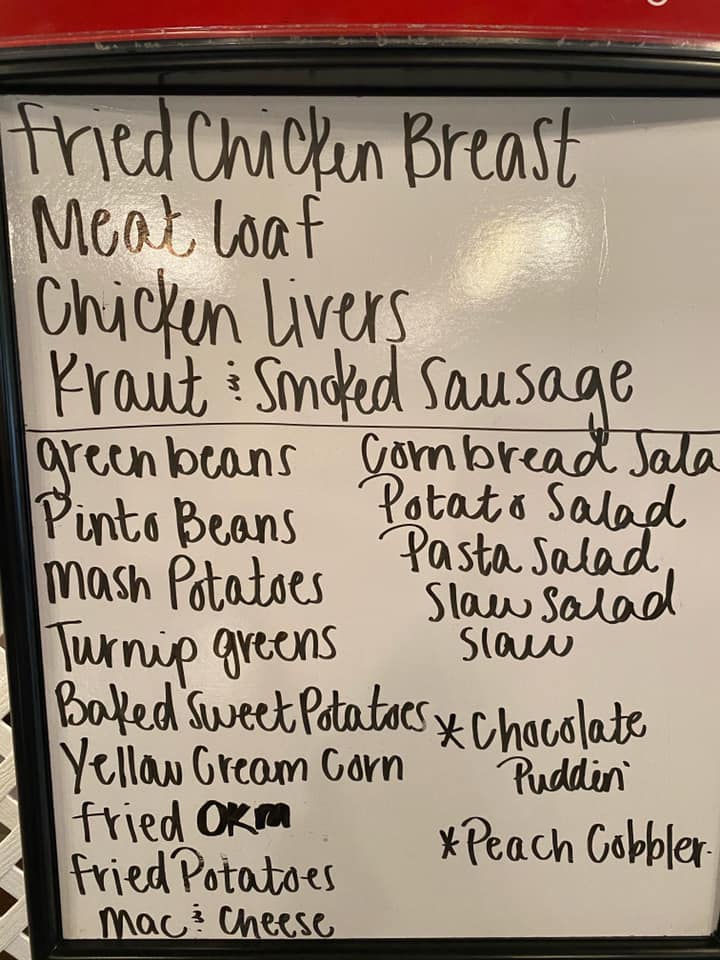 Fried Chicken Breast
Meat Loaf
Chicken Livers
Kraut & Smoked Sausage
green beans
Pinto Beans
Mash Potatoes
Turnip greens
Baked Sweet Potatoes
Yellow Cream Corn
Fried OKra
Fried Potatoes
Mac & Cheese
Cornbread Sala
Potato Salad
Pasta Salad
Slaw Salad
Slaw
*Chocolate
Puddin'
*Peach Cobbler